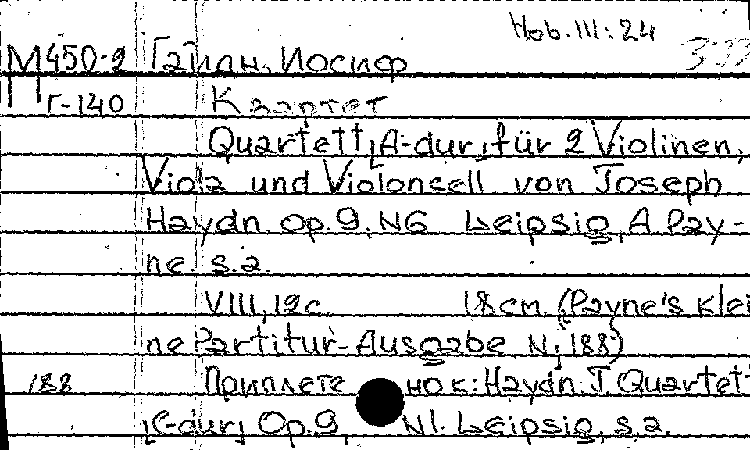 Hob. III: 24
М450-2 Гайдн, Иосиф
Г-140 Квартет
Quartett, A-dur, für 2 Violinen,
Viola und Violonsell von Joseph
Haydn Op. 9, N6 Leipsig, A Pay-
ne s.a.
VIII, 12 c. 18 cm. (Payne's Klei
ne Partitur-Ausgabe N. 188)
188 Приплете но к: Haydn. J. Quartett
C-dur, Op. 9, N1. Leipsig, s.a.